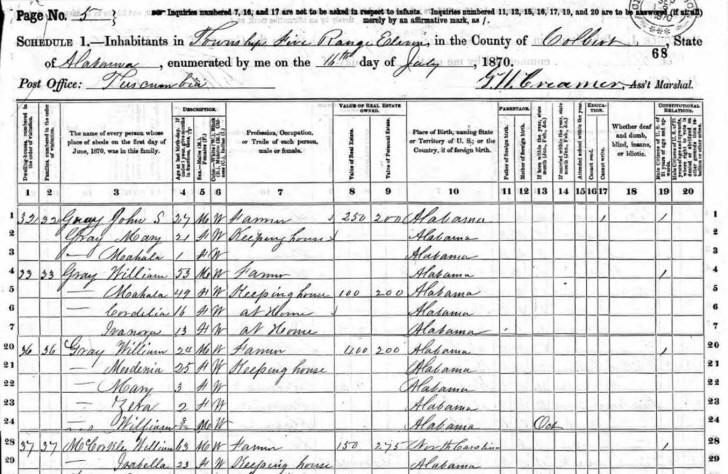 Page No. 5
Inquiries numbered 7, 16, and 17 are not to be asked in respect to infants. Inquiries numbered 11, 12, 15, 16, 17, 19, and 20 are to be answered (if at all)
merely by an affirmative mark, as /.
SCHEDULE 1.—Inhabitants in Township Five Range Eleven, in the County of Colbert, State
68
of Alabama, enumerated by me on the 16th day of July, 1870.
Post Office: Tuscumbia
G. W. Creamer, Ass't Marshal.
DESCRIPTION. VALUE OF REAL ESTATE OWNED. PARENTAGE. EDUCATION. CONSTITUTIONAL RELATIONS.
The name of every person whose place of abode on the first day of June, 1870, was in this family.
Profession, Occupation, or Trade of each person, male or female.
Value of Real Estate. Value of Personal Estate.
Place of Birth, naming State or Territory of U. S.; or the Country, if of foreign birth.
Father of foreign birth. Mother of foreign birth.
Attended school within the year. Cannot read. Cannot write.
Whether deaf and dumb, blind, insane, or idiotic.
1 2 3 4 5 6 7 8 9 10 11 12 13 14 15 16 17 18 19 20
1 32 32 Gray John S 27 M W Farmer 250 200 Alabama / / 1
2 Gray Mary 21 F W Keeping house Alabama 2
3 — Mahala 1 F W Alabama 3
4 33 Gray William 53 M W Farmer Alabama / 4
5 — Mahala 49 F W Keeping house 100 200 Alabama 5
6 — Cordelia 16 F W at Home Alabama 6
7 Ivanora 13 F W at Home Alabama 7
20 36 36 Gray William 24 M W Farmer 200 Alabama / 20
21 — 25 F W Keeping house Alabama 21
22 — Mary 3 F W Alabama 22
23 — 2 F W Alabama 23
24 William M W Alabama Oct 24
28 37 37 William 63 M W Farmer 150 275 North Carolina / 28
29 — Isabella 23 F W Keeping house Alabama 29